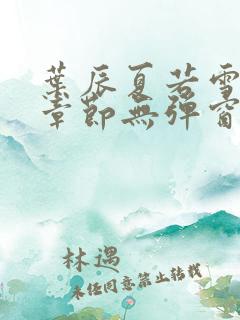 葉辰夏若雪
章節無彈窗
林遇
未經同意禁止轉載